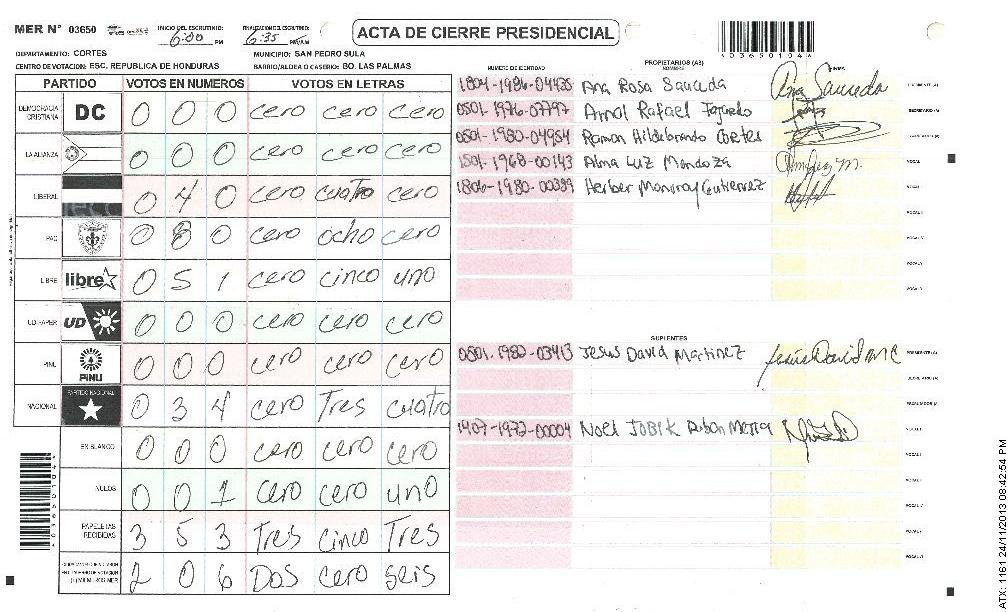 MER Nº 03650 INICIO DEL ESCRUTINIO: 6:00 PM FINALIZACIÓN DEL ESCRUTINIO: 6:35 PM/AM ACTA DE CIERRE PRESIDENCIAL
DEPARTAMENTO: CORTES MUNICIPIO: SAN PEDRO SULA
CENTRO DE VOTACION: ESC. REPUBLICA DE HONDURAS BARRIO/ALDEA O CASERIO: BO. LAS PALMAS
PARTIDO VOTOS EN NUMEROS VOTOS EN LETRAS
DEMOCRACIA CRISTIANA DC 0 0 0 cero cero cero
LA ALIANZA 0 0 0 cero cero cero
LIBERAL 0 4 0 cero cuatro cero
PAC 0 8 0 cero ocho cero
LIBRE libre 0 5 1 cero cinco uno
UD-FAPER UD 0 0 0 cero cero cero
PINU PINU 0 0 0 cero cero cero
NACIONAL PARTIDO NACIONAL 0 3 4 cero Tres cuatro
EN BLANCO 0 0 0 cero cero cero
NULOS 0 0 1 cero cero uno
PAPELETAS RECIBIDAS 3 5 3 Tres cinco Tres
2 0 6 Dos cero seis
PROPIETARIOS (AS)
NUMERO DE IDENTIDAD NOMBRE FIRMA
1804-1986-04435 Ana Rosa Sauceda Ana Sauceda PRESIDENTE (A)
0501-1976-07797 Arnol Rafael Fajardo SECRETARIO (A)
0501-1980-04954 Ramon Hildebrando Cortes
1501-1968-00143 Alma Luz Mendoza VOCAL
1806-1980-00389 Herber Monroy Gutierrez
SUPLENTES
0501-1980-03413 Jesus David Martinez Jesús David M C PRESIDENTE (A)
SECRETARIO (A)
1407-1973-00004 Noel
ATX: 1161 24/11/2013 08:42:54 PM